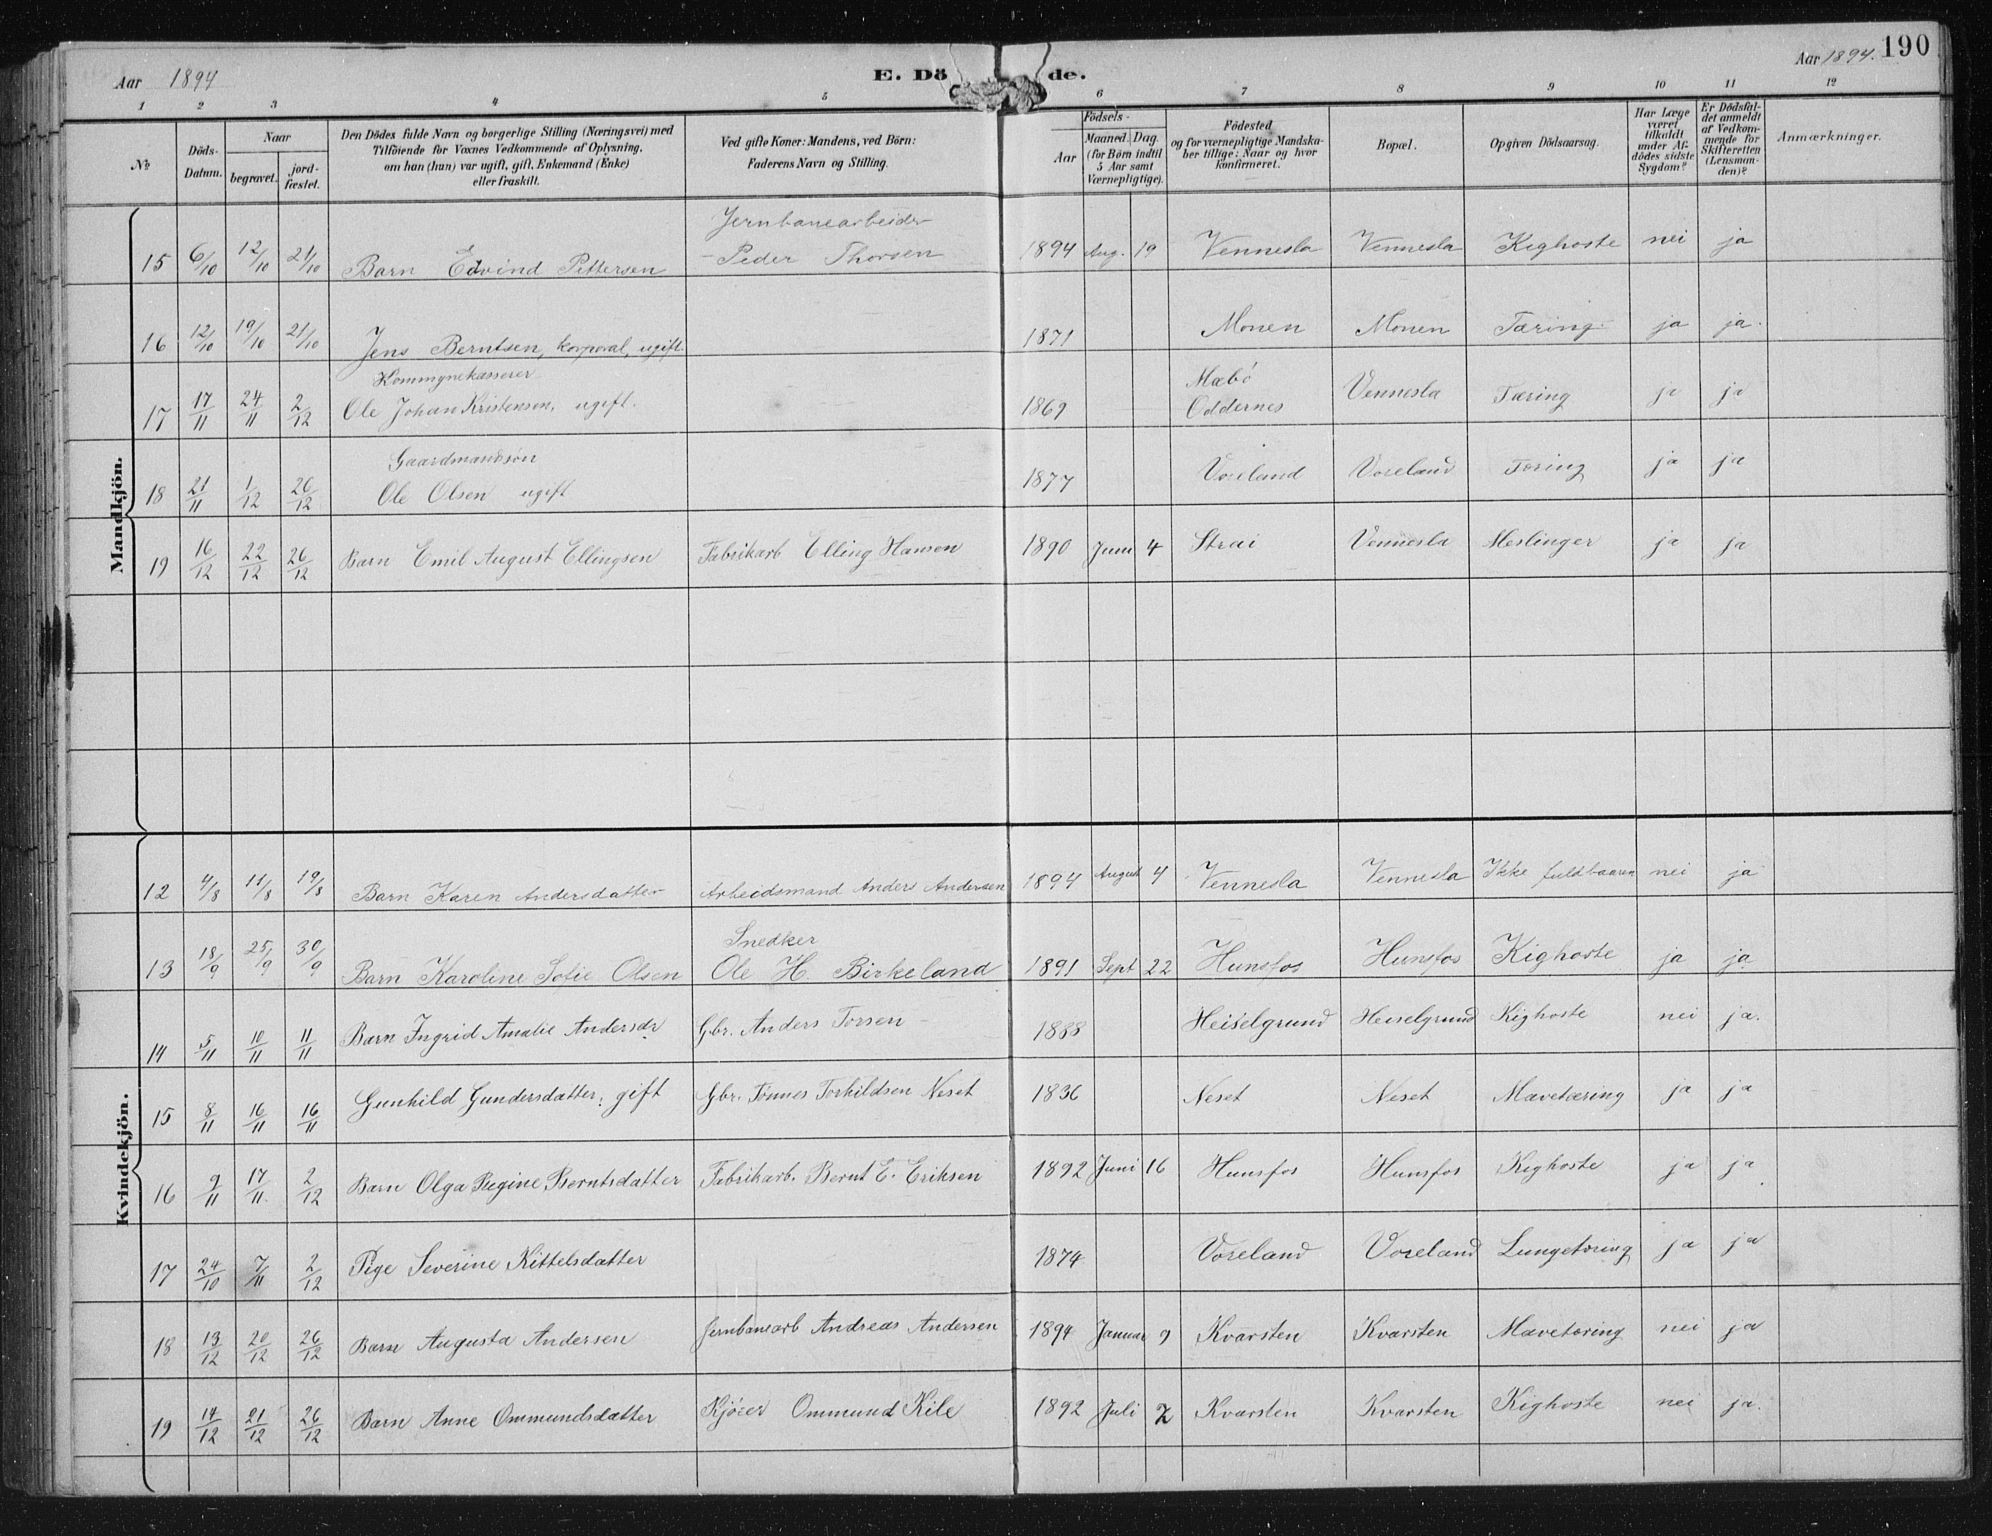 Aar 1894
E. Dö de.
Aar 1894. 190
1 2 3 4 5 6 7 8 9 10 11 12
No
Döds-Datum.
Naar
begravet.
jord-fæstet.
Den Dödes fulde Navn og borgerlige Stilling (Næringsvei) med
Tilföiende for Voxnes Vedkommende af Oplysning.
om han (hun) var ugift, gift, Enkemand (Enke)
eller fraskilt.
Ved gifte Koner: Mandens, ved Börn:
Faderens Navn og Stilling.
Födsels-
Aar
Maaned. Dag.
(for Börn indtil
5 Aar samt
Værnepligtige).
Födested
og for værnepligtige Mandska-
ber tillige: Naar og hvor
konfirmeret.
Bopæl.
Opgiven Dödsaarsag.
Har Læge
været
tilkaldt
under Af-
dödes sidste
Sygdom?
Er Dödsfal-
det anmeldt
af Vedkom-
mende for
Skifteretten
(Lensman-
den)?
Anmærkninger.
Mandkjön.
Jernbanearbeider
15 6/10 12/10 21/10 Barn Edvind Pettersen Peder Thorsen 1894 Aug. 19 Vennesla Vennesla Kighoste nei ja
16 12/10 19/10 21/10 Jens Berntsen, korporal, ugift. 1871 Monen Monen Tæring ja ja.
Kommynekasserer Mæbö
17 17/11 24/11 2/12 Ole Johan Kristensen, ugift. 1869 Oddernes Vennesla Tæring ja ja
Gaardmandsön
18 21/11 1/12 26/12 Ole Olsen ugift 1877 Voreland Voreland Tæring ja ja
19 16/12 22/12 26/12 Barn Emil August Ellingsen Fabrikarb Elling Hansen 1890 Juni 4 Strai Vennesla Meslinger ja ja
Kvindekjön.
12 4/8 11/8 19/8 Barn Karen Andersdatter Arbeidsmand Anders Andersen 1894 August 4 Vennesla Vennesla Ikke fuldbaaren nei ja
Snedker
13 18/9 25/9 30/9 Barn Karoline Sofie Olsen Ole H. Birkeland 1891 Sept 22 Hunsfos Hunsfos Kighoste ja ja
14 5/11 10/11 11/11 Barn Ingrid Amalie Andersdr Gbr. Anders Torsen 1888 Heiselgrund Heiselgrund Kighoste nei ja.
15 8/11 16/11 16/11 Gunhild Gundersdatter, gift Gbr. Tönnes Torkildsen Neset 1836 Neset Neset Mavetæring ja ja
16 9/11 17/11. 2/12 Barn Olga Regine Berntsdatter Fabrikarb. Bernt E. Eriksen 1892 Juni 16 Hunsfos Hunsfos Kighoste ja ja
17 24/10 7/11 2/12 Pige Severine Kittelsdatter 1874 Voreland Voreland Lungetæring ja ja
18 13/12 20/12 26/12 Barn Augusta Andersen Jernbanearb Andreas Andersen 1894 Januar 9 Kvarsten Kvarsten Mavetæring nei ja
19 14/12 21/12 26/12 Barn Anne Ommundsdatter Kjörer Ommund Kile 1892 Juli 2 Kvarsten Kvarsten Kighoste nei ja.